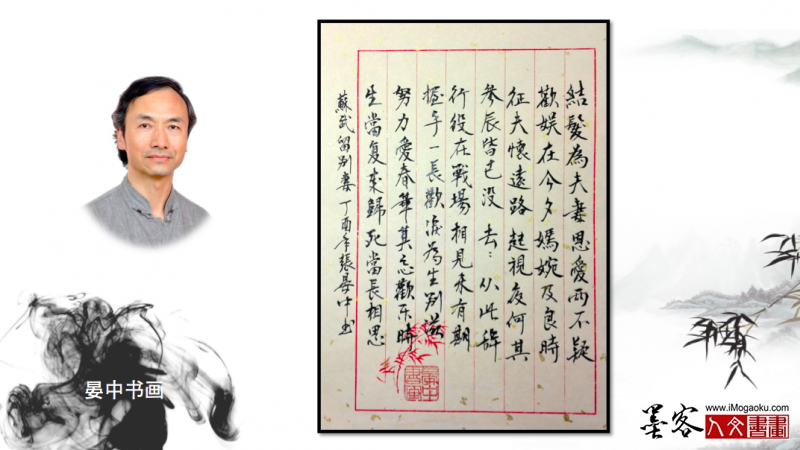 結髮為夫妻恩愛两不疑
歡娛在今夕嫣婉及良時
征夫懷遠路起視夜何其
參辰皆已没去:从此辞
行役在戰場相見未有期
握手一長歎淚為生别滋
努力愛春華莫忘歡乐時
生當复來歸死當長相思
蘇武留别妻 丁酉年張晏中书
晏中书画
墨客
www.iMogaoku.com
人文書畫